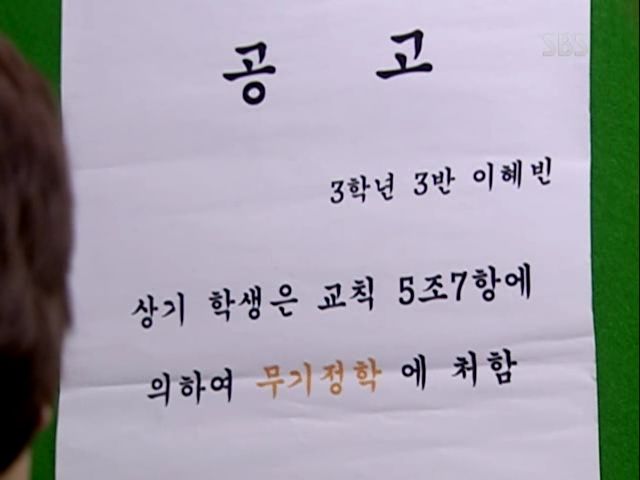 SBS
공 고
3학년 3반 이혜빈
상기 학생은 교칙 5조7항에
의하여 무기정학 에 처함